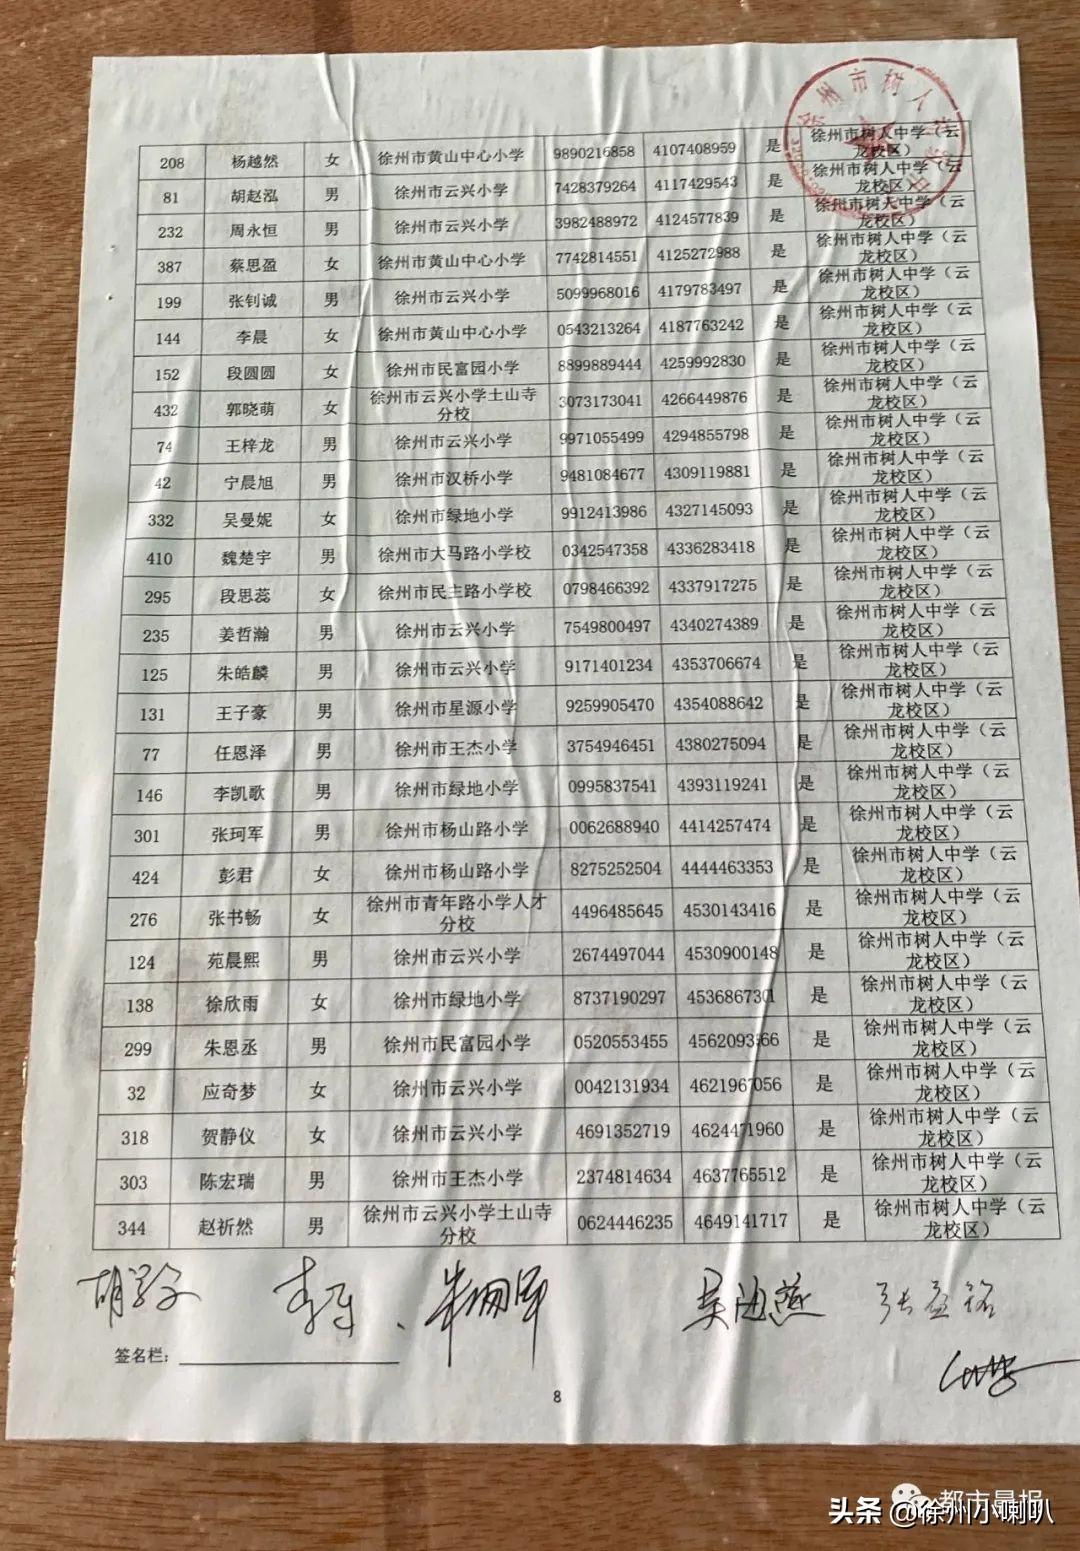 徐州市树人中学
208 杨越然 女 徐州市黄山中心小学 9890216858 4107408959 是 徐州市树人中学（云
龙校区）
81 胡赵泓 男 徐州市云兴小学 7428379264 4117429543 是 徐州市树人中学（云
龙校区）
232 周永恒 男 徐州市云兴小学 3982488972 4124577839 是 徐州市树人中学（云
龙校区）
387 蔡思盈 女 徐州市黄山中心小学 7742814551 4125272988 是 徐州市树人中学（云
龙校区）
199 张钊诚 男 徐州市云兴小学 5099968016 4179783497 是 徐州市树人中学（云
龙校区）
144 李晨 女 徐州市黄山中心小学 0543213264 4187763242 是 徐州市树人中学（云
龙校区）
152 段圆圆 女 徐州市民富园小学 8899889444 4259992830 是 徐州市树人中学（云
龙校区）
432 郭晓萌 女 徐州市云兴小学土山寺 3073173041 4266449876 是 徐州市树人中学（云
分校 龙校区）
74 王梓龙 男 徐州市云兴小学 9971055499 4294855798 是 徐州市树人中学（云
龙校区）
42 宁晨旭 男 徐州市汉桥小学 9481084677 4309119881 是 徐州市树人中学（云
龙校区）
332 吴曼妮 女 徐州市绿地小学 9912413986 4327145093 是 徐州市树人中学（云
龙校区）
410 魏楚宇 男 徐州市大马路小学校 0342547358 4336283418 是 徐州市树人中学（云
龙校区）
295 段思蕊 女 徐州市民主路小学校 0798466392 4337917275 是 徐州市树人中学（云
龙校区）
235 姜哲瀚 男 徐州市云兴小学 7549800497 4340274389 是 徐州市树人中学（云
龙校区）
125 朱皓麟 男 徐州市云兴小学 9171401234 4353706674 是 徐州市树人中学（云
龙校区）
131 王子豪 男 徐州市星源小学 9259905470 4354088642 是 徐州市树人中学（云
龙校区）
77 任恩泽 男 徐州市王杰小学 3754946451 4380275094 是 徐州市树人中学（云
龙校区）
146 李凯歌 男 徐州市绿地小学 0995837541 4393119241 是 徐州市树人中学（云
龙校区）
301 张珂军 男 徐州市杨山路小学 0062688940 4414257474 是 徐州市树人中学（云
龙校区）
424 彭君 女 徐州市杨山路小学 8275252504 4444463353 是 徐州市树人中学（云
龙校区）
276 张书畅 女 徐州市青年路小学人才 4496485645 4530143416 是 徐州市树人中学（云
分校 龙校区）
124 苑晨熙 男 徐州市云兴小学 2674497044 4530900148 是 徐州市树人中学（云
龙校区）
138 徐欣雨 女 徐州市绿地小学 8737190297 4536867301 是 徐州市树人中学（云
龙校区）
299 朱恩丞 男 徐州市民富园小学 0520553455 是 徐州市树人中学（云
龙校区）
32 应奇梦 女 徐州市云兴小学 0042131934 4621967056 是 徐州市树人中学（云
龙校区）
318 贺静仪 女 徐州市云兴小学 4691352719 4624471960 是 徐州市树人中学（云
龙校区）
303 陈宏瑞 男 徐州市王杰小学 2374814634 4637765512 是 徐州市树人中学（云
龙校区）
344 赵祈然 男 徐州市云兴小学土山寺 0624446235 4649141717 是 徐州市树人中学（云
分校 龙校区）
吴海燕 张益铭
签名栏：
8
都市晨报
头条 @徐州小喇叭